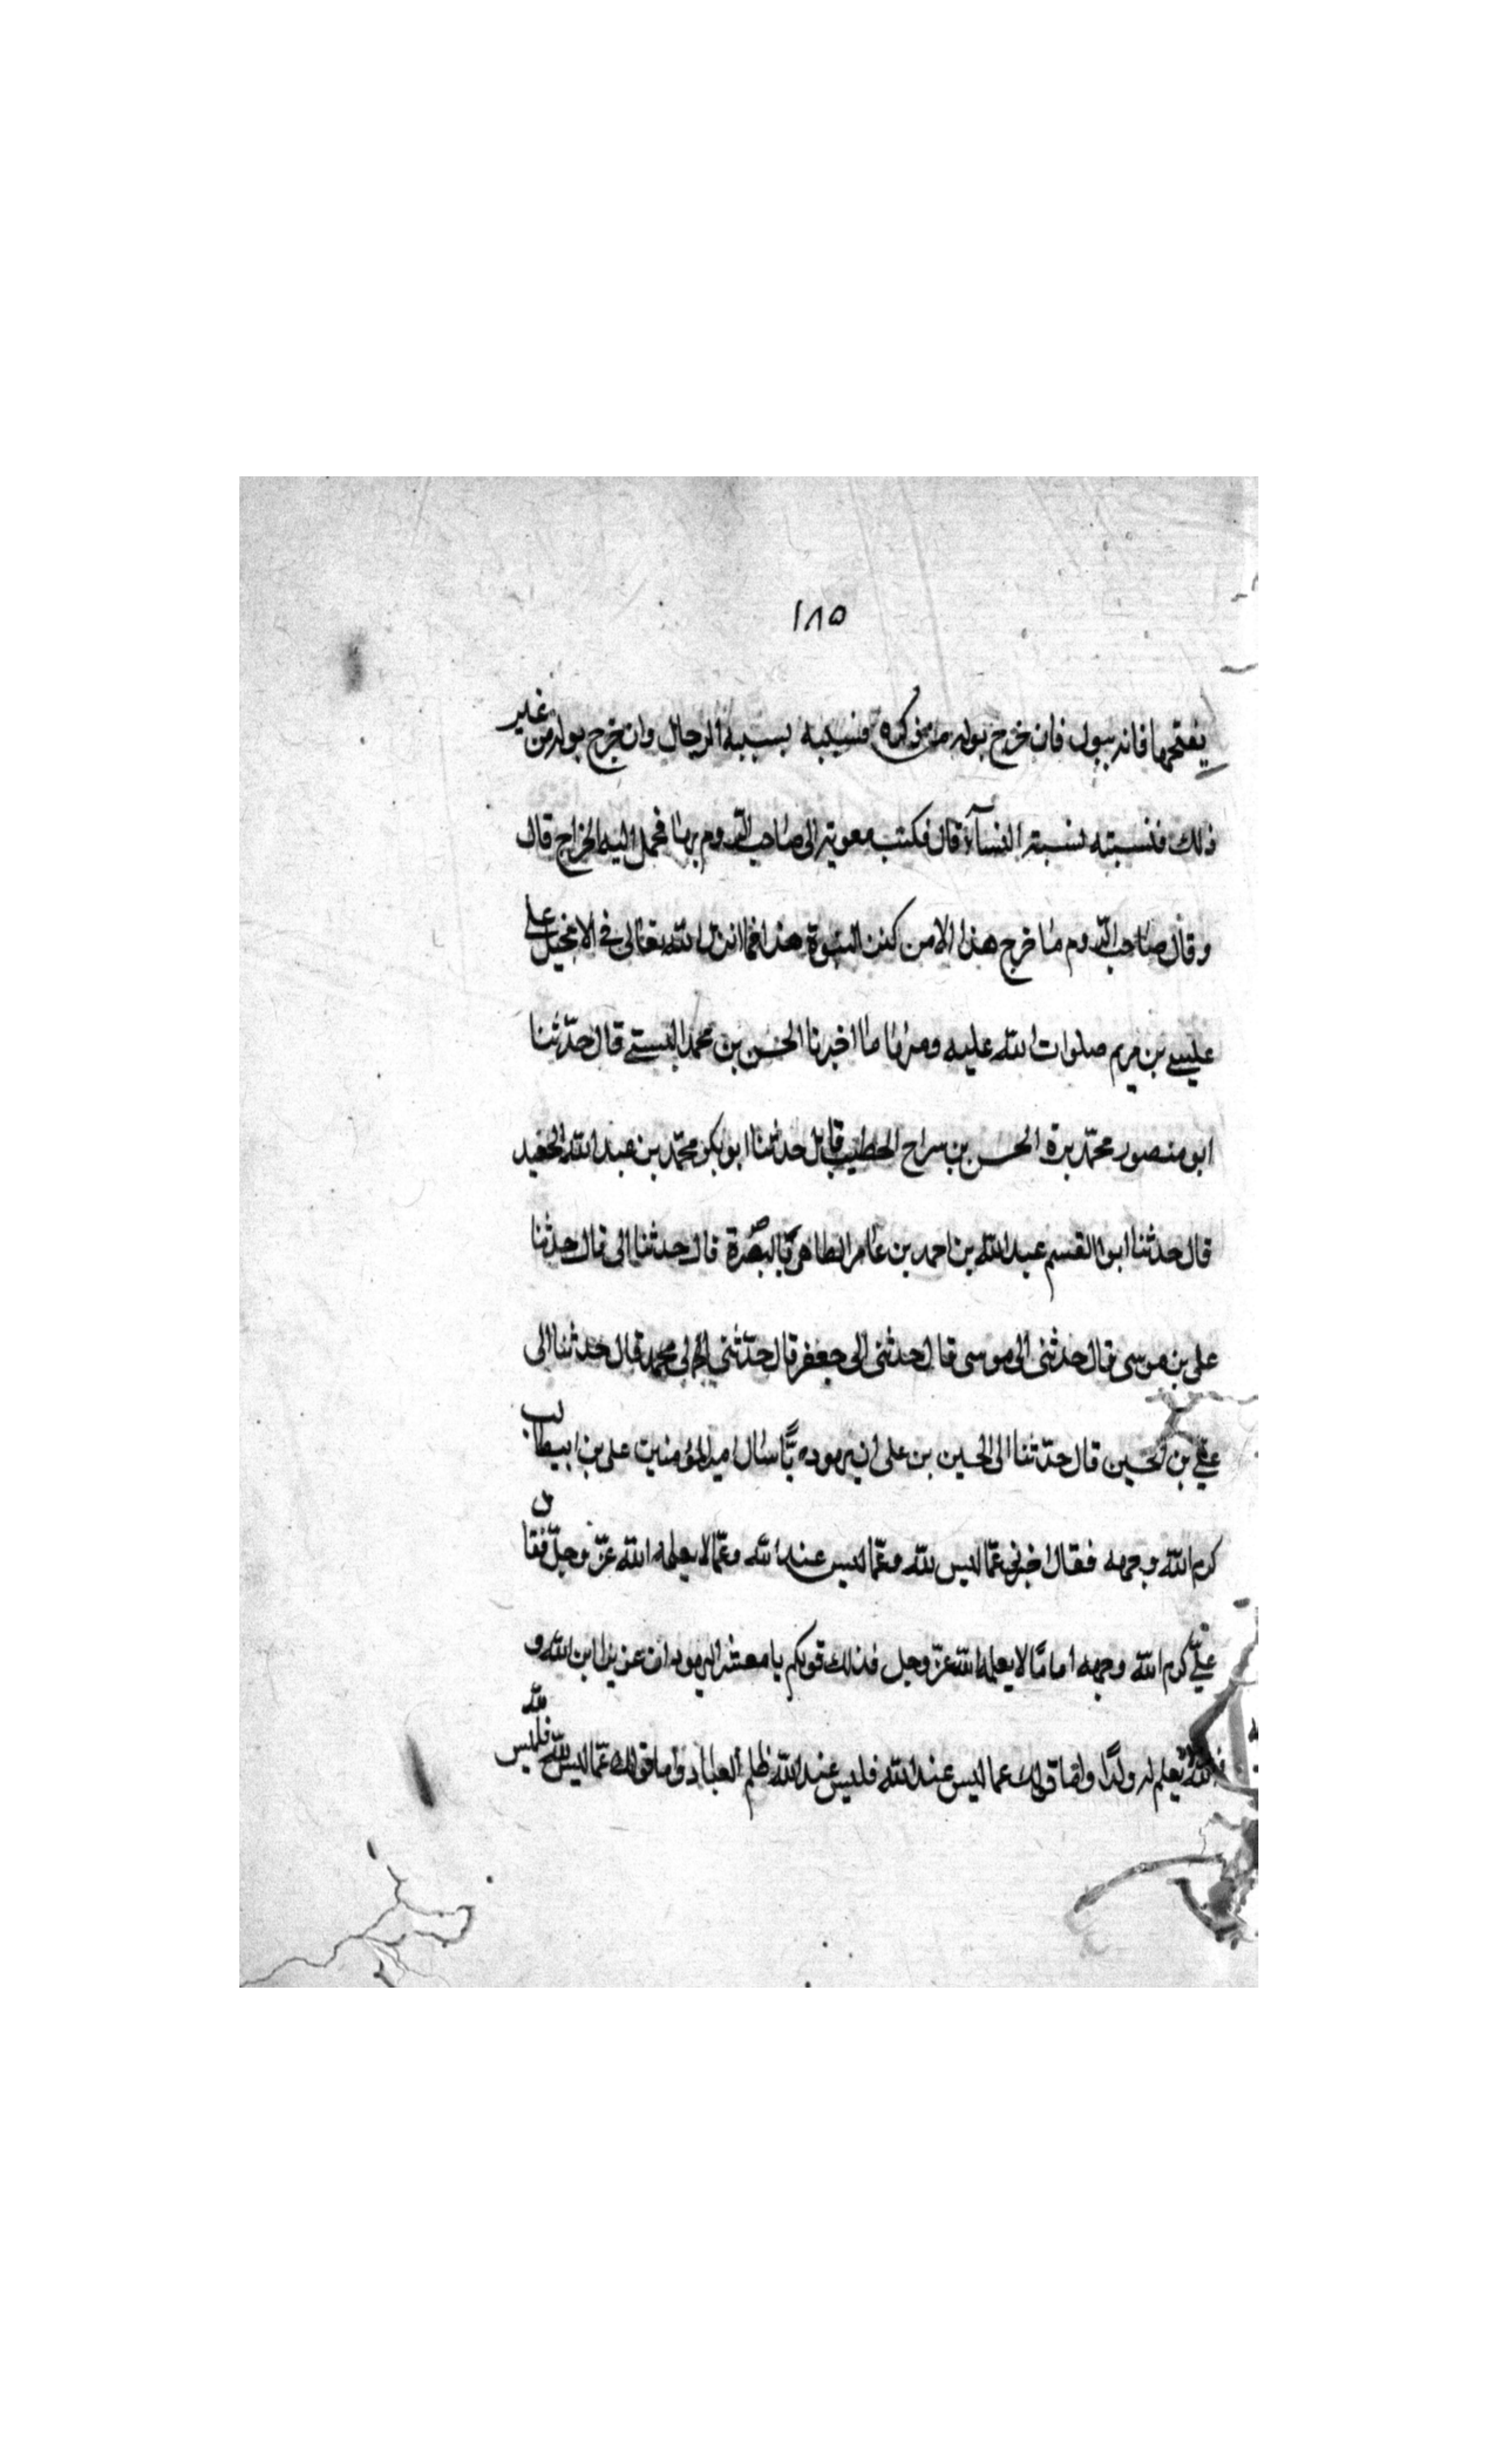 ١٨٥
يفتحها فانه يبول فان خرج بوله من ذكره فنسبته بسببه الرجال وان خرج بوله من غير
ذلك فنسبته نسبته النسآء قال فكتب معوية الى صاحب الروم بهٰا فحمل اليه الخراج قال
وقال صٰاحب الروم مٰا خرج هذا الا من كنز النبوة هذا فما انزل الله تعٰالى فى الانجيل على
عيسى بن مريم صلوات الله عليه ومنها مٰا اخبرنا الحسن بن محمد البستى قال حدّثنا
ابو منصور محمّد برة الحسن بن سراح الحطيب قال حدثنا ابو بكر محمّد بن عبد الله الحفيد
قال حدثنا ابو القسم عبد الله بن احمد بن عٰامر الطاهى بالبصرة قال حدثنا ابى قال حدثنا
على بن موسى قال حدثنى ابى موسى قال حدثنى ابى جعفر قال حدّثنى ابى محمد قال حدثنا ابى
على بن الحسين قال حدّثنا ابى الحسين بن على ان يهوديًّا سٰال امير المؤمنين على بن ابيطالب
كرم الله وجهه فقال اخبرنى عمّا ليس لله وعمّا ليس عند الله وعمّا لا يعلمه الله عزّ وجلّ فقال
علىّ كرم الله وجهه اما مّا لا يعلمه الله عزّ وجل فذلك قولكم يا معشر اليهود ان عزيرا ابن الله و
الله لا يعلم له ولدًا واما قولك عما ليس عند الله فليس عند الله ظلم العباد واما قولك عمّا ليس لله فليس لله